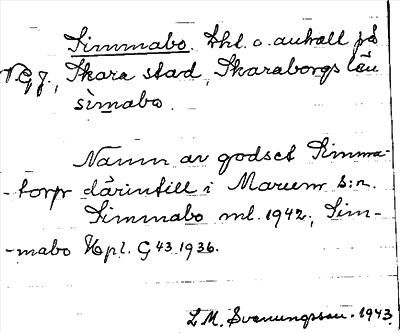 Simmabo. Lht. o. anhalt på
N.G.J., Skara stad, Skaraborgs län
simabo.
Namn av godset Simma-
-torp därintill i Marum s:n.
Simmabo ml. 1942; Sim-
-mabo Hpl. G 43 1936.
L.M. Svenungsson. 1943.